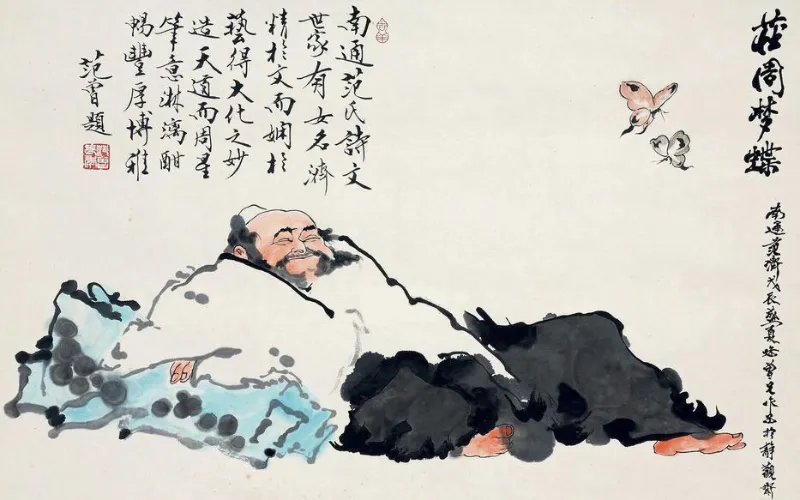 莊周梦蝶
南通范濟戊辰夏於静觀齋
南通范氏詩文
世家有女名濟
精於文而嫻於
藝得大化之妙
造天道而周星
筆意淋漓酣
暢豐厚博雅
范曾題